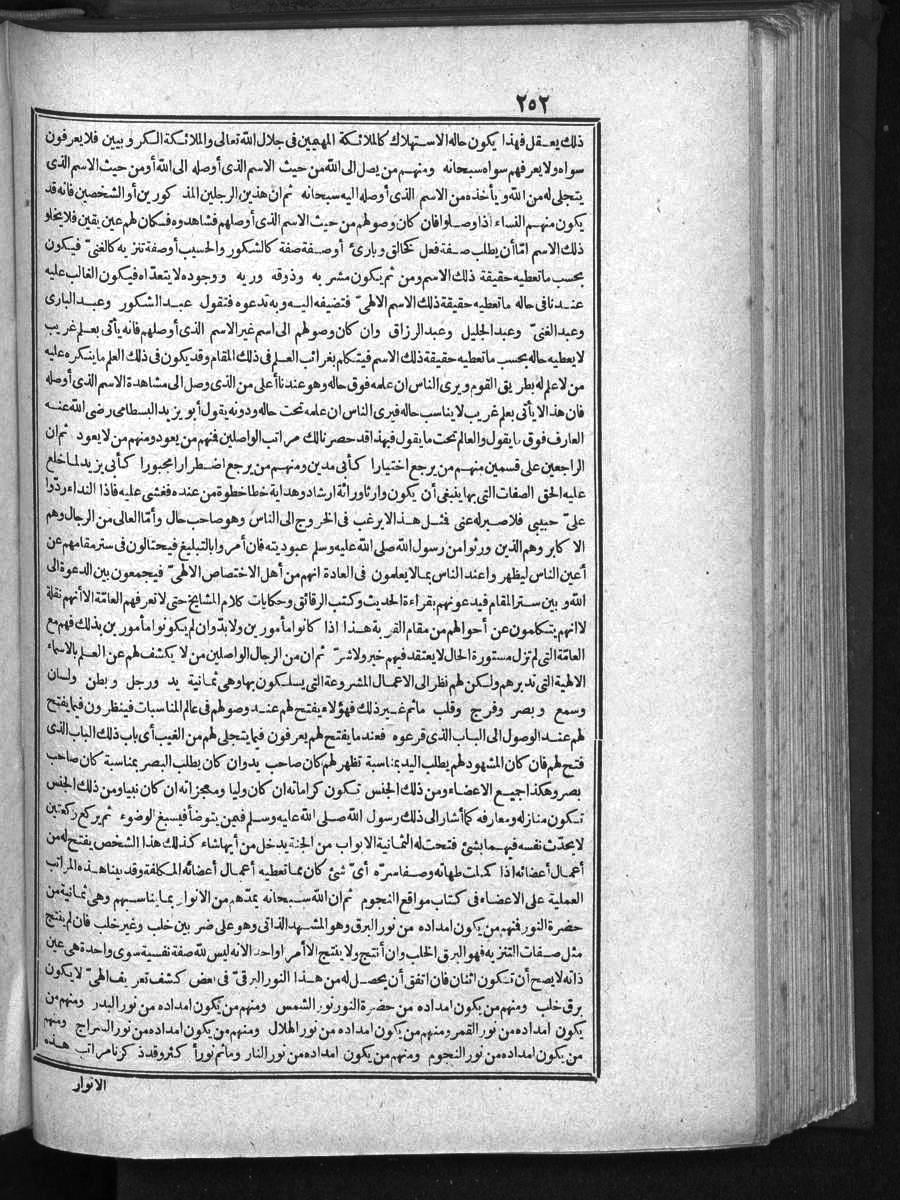 ٢٥٢
ذلك يعقل فهذا يكون حاله الاستهلاك كالملائكة المهيمين في جلال الله تعالى والملائكة الكروبيين فلا يعرفون
سواه ولا يعرفهم سواه سبحانه ومنهم من يصل الى الله من حيث الاسم الذى أوصله الى الله أو من حيث الاسم الذى
يتجلى له من الله ويأخذه من الاسم الذى أوصله اليه سبحانه ثم ان هذين الرجلين المذكورين أو الشخصين فانه قد
يكون منهم النساء اذا وصلوا فان كان وصولهم من حيث الاسم الذى أوصلهم فشاهدوه فكان لهم عين يقين فلا يخلو
ذلك الاسم امّا أن يطلب صفة فعل كخالق وبارئ أو صفة صفة كالشكور والحسيب أو صفة تنزيه كالغنىّ فيكون
بحسب ما تعطيه حقيقة ذلك الاسم ومن ثم يكون مشربه وذوقه وريه ووجوده لا يتعداه فيكون الغالب عليه
عندنا فى حاله ما تعطيه حقيقة ذلك الاسم الالهىّ فتضيفه اليه وبه تدعوه فتقول عبد الشكور وعبد البارى
وعبد الغنىّ وعبد الجليل وعبد الرزاق وان كان وصولهم الى اسم غير الاسم الذى أوصلهم فانه يأتى بعلم غريب
لا يعطيه حاله بحسب ما تعطيه حقيقة ذلك الاسم فيتكلم بغرائب العلم فى ذلك المقام وقد يكون فى ذلك العلم ما ينكره عليه
من لا علم له بطريق القوم ويرى الناس ان علمه فوق حاله وهو عندنا أعلى من الذى وصل الى مشاهدة الاسم الذى أوصله
فان هذا لا يأتى بعلم غريب لا يناسب حاله فيرى الناس ان علمه تحت حاله ودونه يقول أبو يزيد البسطامى رضى الله عنه
العارف فوق ما يقول والعالم تحت ما يقول فبهذا قد حصرنا لك مراتب الواصلين فمنهم من يعود ومنهم من لا يعود ثم ان
الراجعين على قسمين منهم من يرجع اختيارا كأبى مدين ومنهم من يرجع اضطرارا مجبورا كأبى يزيد لما خلع
عليه الحق الصفات التى بها ينبغى أن يكون وارثا وراثة ارشاد وهداية خطا خطوة من عنده فغشى عليه فاذا النداء ردّوا
علىّ حبيبى فلا صبر له عنى فمثل هذا لا يرغب فى الخروج الى الناس وهو صاحب حال وأمّا العالى من الرجال وهم
الاكابر وهم الذين ورثوا من رسول الله صلى الله عليه وسلم عبوديته فان أمروا بالتبليغ فيحتالون فى ستر مقامهم عن
أعين الناس ليظهروا عند الناس بما لا يعلمون فى العادة انهم من أهل الاختصاص الالهىّ فيجمعون بين الدعوة الى
الله وبين ستر المقام فيدعونهم بقراءة الحديث وكتب الرقائق وحكايات كلام المشايخ حتى لا تعرفهم العامّة الا أنهم نقلة
لا انهم يتكلمون عن أحوالهم من مقام القربة هذا اذا كانوا مأمورين ولا بدّ وان لم يكونوا مأمورين بذلك فهم مع
العامّة التى لم تزل مستورة الحال لا يعتقد فيهم خير ولا شرّ ثم ان من الرجال الواصلين من لا يكشف لهم عن العلم بالاسماء
الالهية التى تدبرهم ولكن لهم نظر الى الاعمال المشروعة التى يسلكون بها وهى ثمانية يد ورجل وبطن ولسان
وسمع وبصر وفرج وقلب ما ثم غير ذلك فهؤلاء يفتح لهم عند وصولهم فى عالم المناسبات فينظرون فيما يفتح
لهم عند الوصول الى الباب الذى قرعوه فعند ما يفتح لهم يعرفون فيما يتجلى لهم من الغيب أى باب ذلك الباب الذى
فتح لهم فان كان المشهود لهم يطلب اليد بمناسبة تظهر لهم كان صاحب يد وان كان يطلب البصر بمناسبة كان صاحب
بصر وهكذا جميع الاعضاء ومن ذلك الجنس تكون كراماته ان كان وليا ومعجزاته ان كان نبيا ومن ذلك الجنس
تكون منازله ومعارفه كما أشار الى ذلك رسول الله صلى الله عليه وسلم فيمن يتوضأ فيسبغ الوضوء ثم يركع ركعتين
لا يحدّث نفسه فيهما بشئ فتحت له الثمانية الابواب من الجنة يدخل من أيها شاء كذلك هذا الشخص يفتح له من
أعمال أعضائه اذا كملت طهارته وصفا سرّه أىّ شئ كان مما تعطيه أعمال أعضائه المكلفة وقد بينا هذه المراتب
العملية على الاعضاء فى كتاب مواقع النجوم ثم ان الله سبحانه يمدّهم من الانوار بما يناسبهم وهى ثمانية من
حضرة النور فمنهم من يكون امداده من نور البرق وهو المشهد الذاتى وهو على ضربين خلب وغير خلب فان لم ينتج
مثل صفات التنزيه فهو البرق الخلب وان أنتج ولا ينتج الا أمرا واحدا لانه ليس لله صفة نفسية سوى واحدة هى عين
ذاته لا يصح أن تكون اثنان فان اتفق أن يحصل له من هذا النور البرقىّ فى بعض كشف تعريف الهىّ لا يكون
برق خلب ومنهم من يكون امداده من حضرة النور نور الشمس ومنهم من يكون امداده من نور البدر ومنهم من
يكون امداده من نور القمر ومنهم من يكون امداده من نور الهلال ومنهم من يكون امداده من نور السراج ومنهم
من يكون امداده من نور النجوم ومنهم من يكون امداده من نور النار وما ثم نور أكثر وقد ذكرنا مراتب هذه
الانوار